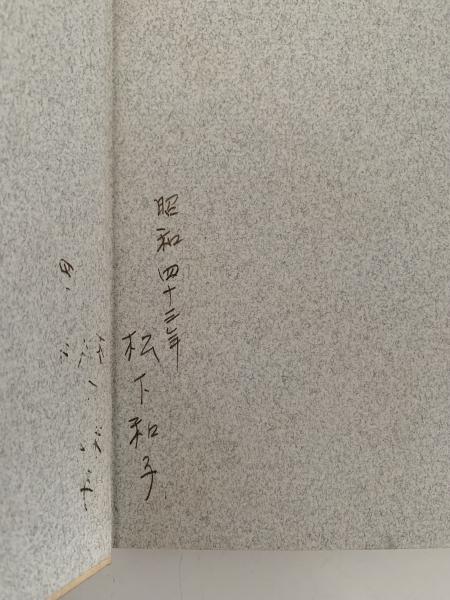 昭和四十三年
松下和子